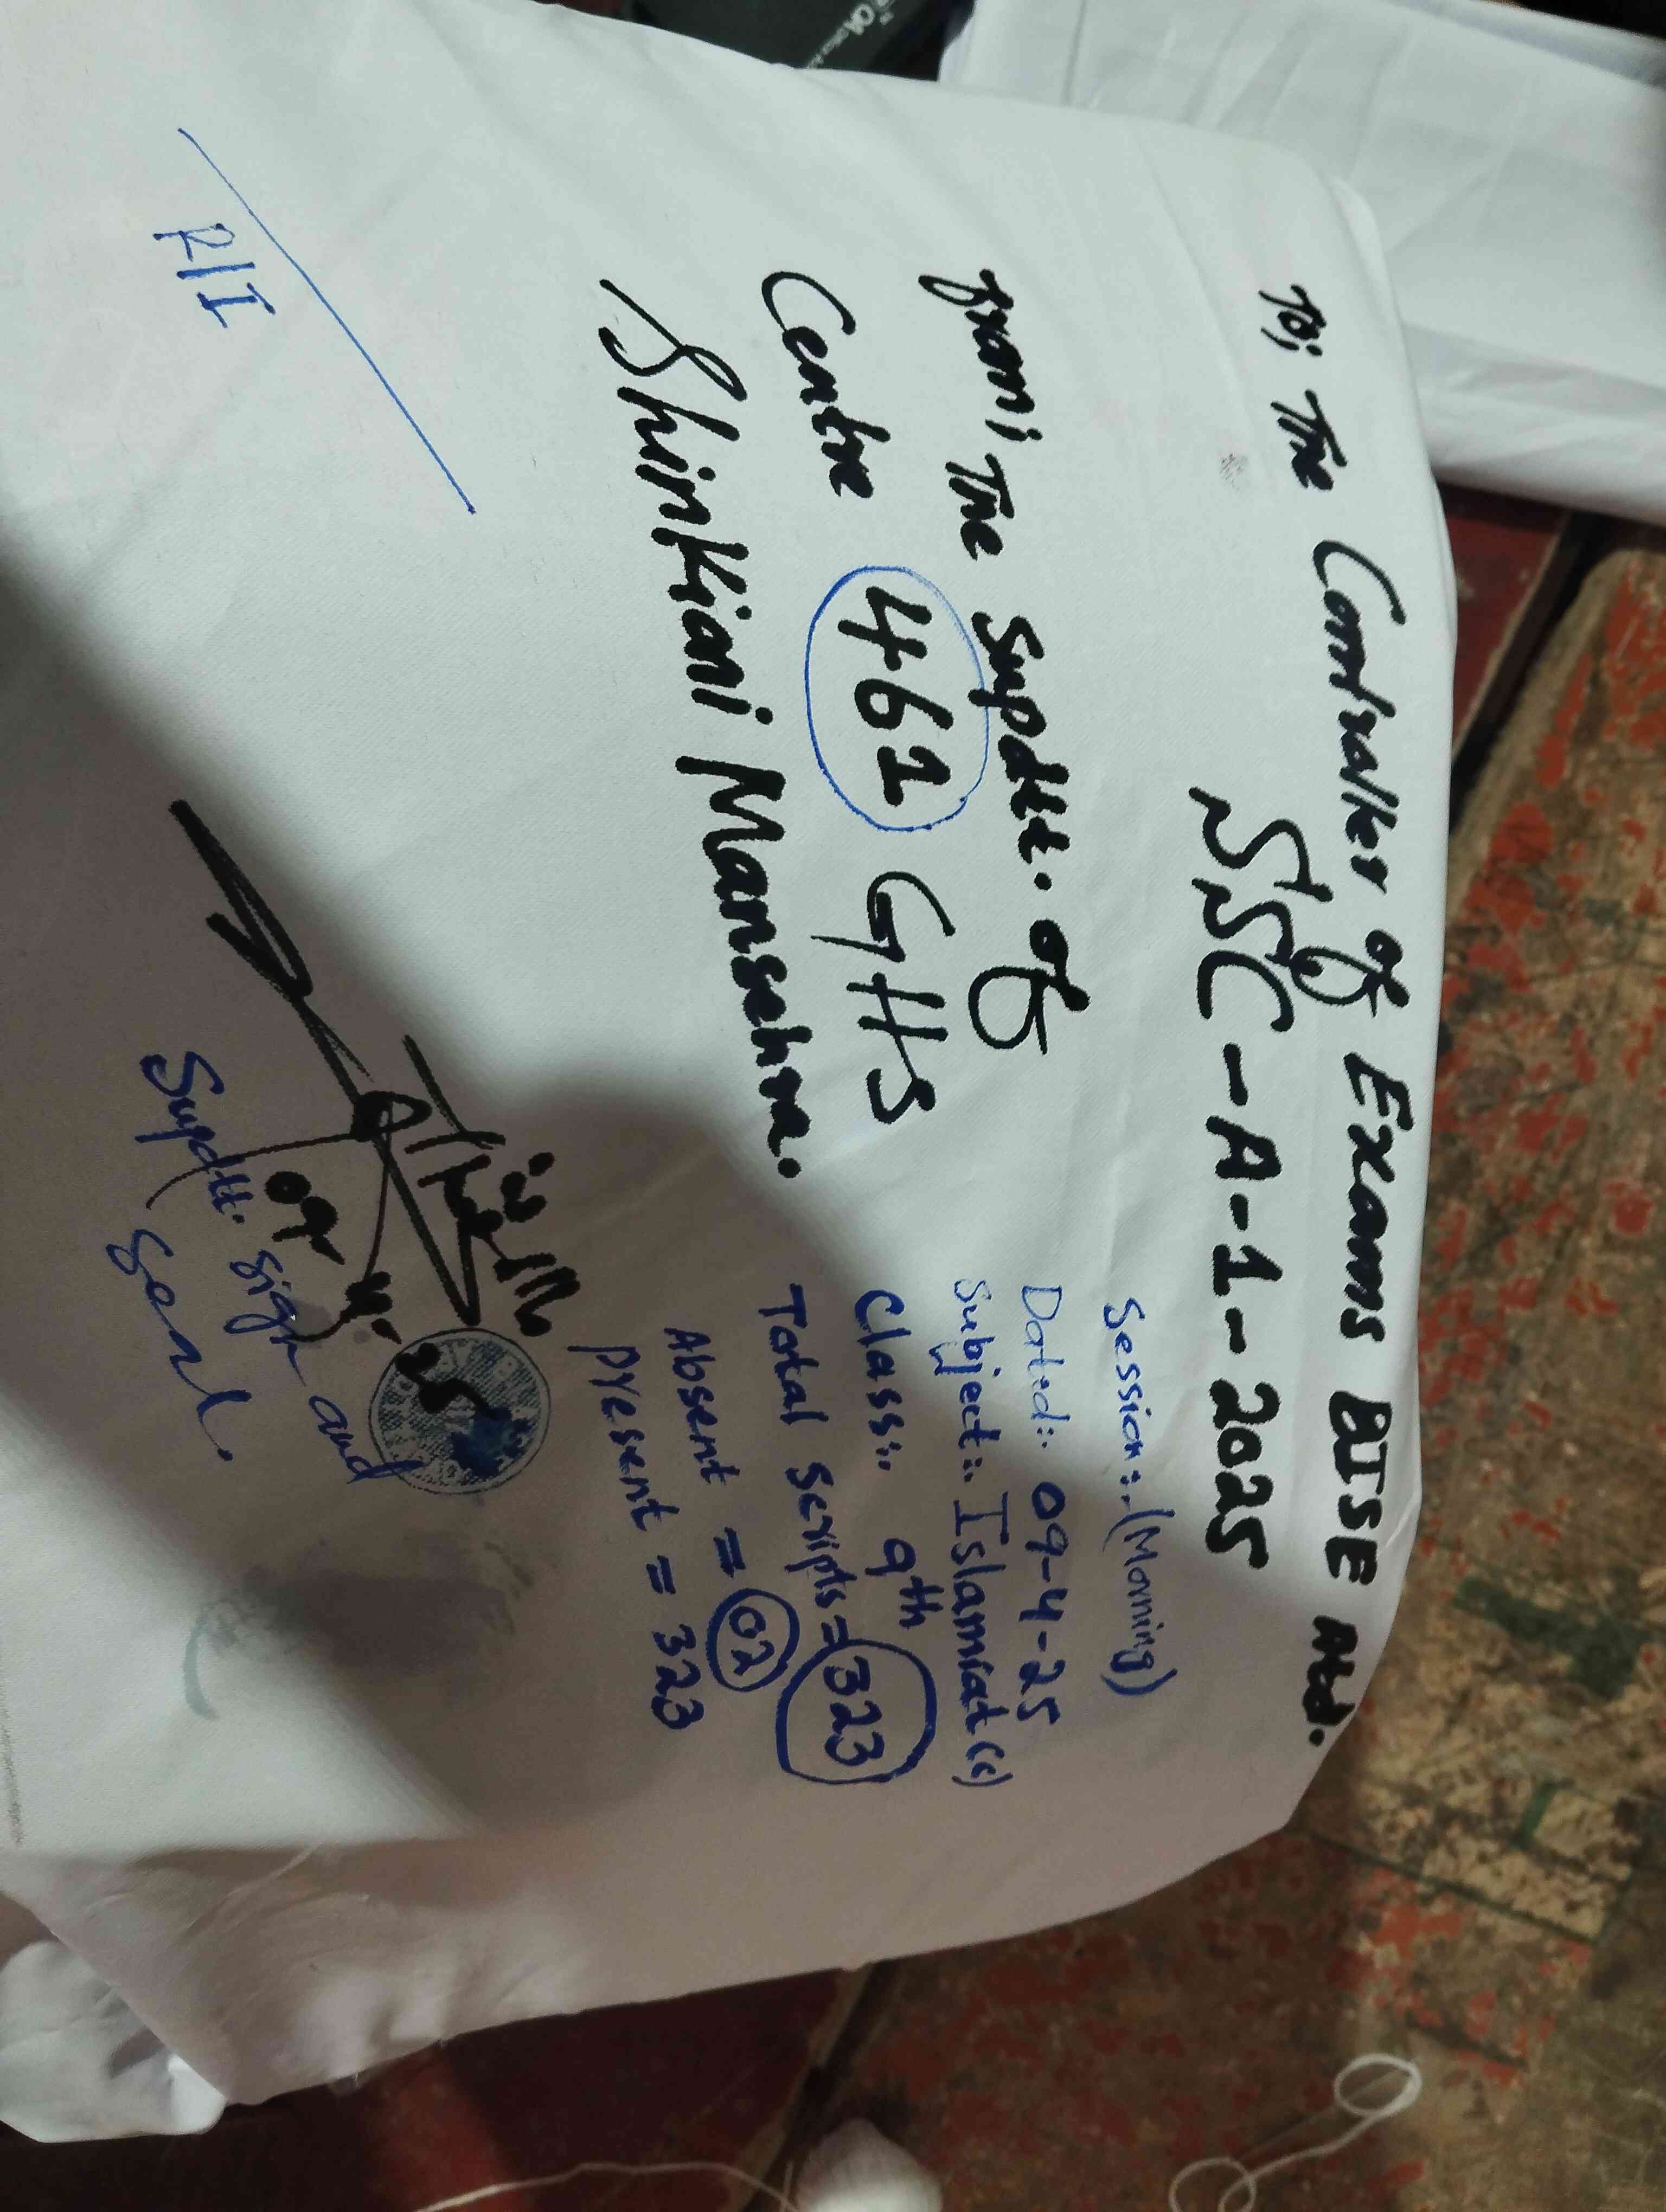 To; The Controller of Exams BISE Atd.
SSC-A-1-2025
from; The Supdtt. of
Centre 461 GHS
Shinkiani Mansehra.
Session:.(Morning)
Dated:. 09-4-25
Subject:. Islamiat (c)
Class:. 9th
Total Scripts= 323
Absent = 02
Present = 323
R/I
09-4-25
Supdtt. Sign and
Seal.